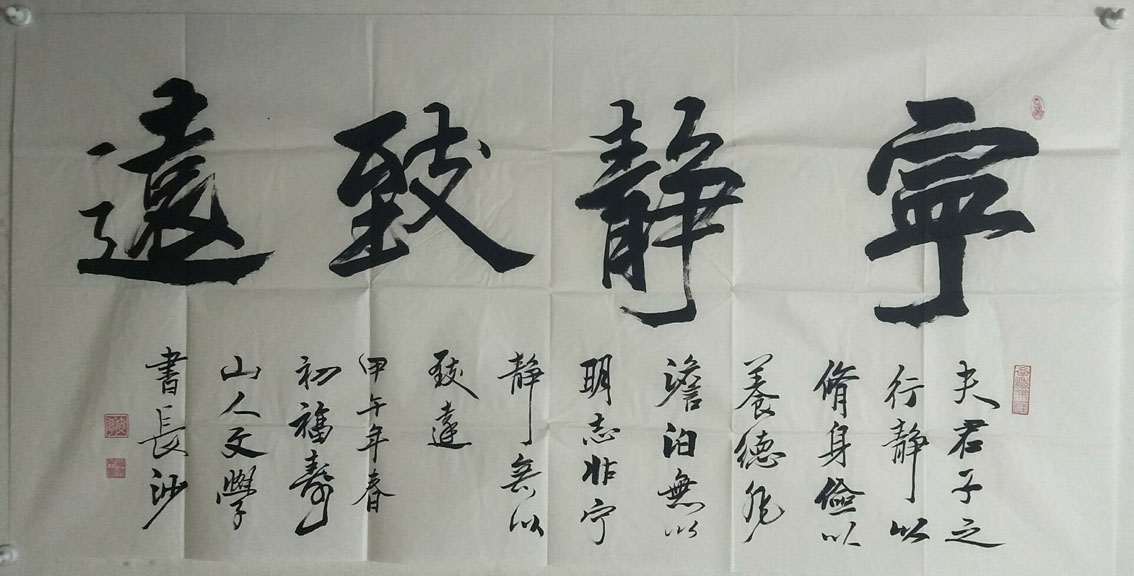 寧静致遠
夫君子之
行静以
脩身儉以
養德非
澹泊無以
明志非宁
静無以
致遠
甲午年春
初福壽
山人文學
書長沙